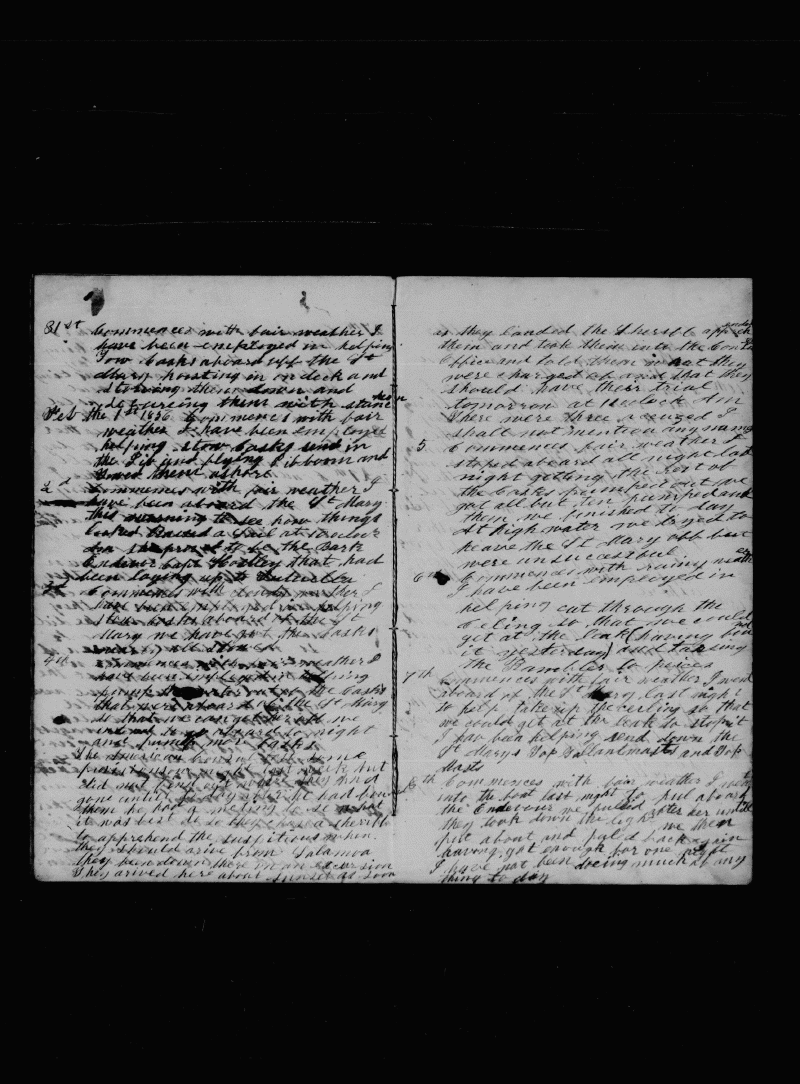 31st Commences with fair weather I
have been employed in helping
Tow Casks aboard off the St
Mary hoisting in on deck and
stowing them down and
Feb the 1st 1856 Commences with fair
weather I have been employed
helping stow Casks send in
the Jib and flying Jib boom and
2d Commences with fair weather I
have been aboard the St Mary
this morning to see how things
looked Raised a Sail at
the Bark
Capt that had
been laying up to
Commences with cloudy weather I
have been employed in helping
stow Casks aboard of the St
Mary we have got the Casks
nearly all stowed
4th Commences with weather I
have been employed in helping
pump the water out of the Casks
that were aboard of the St Mary
so that we can get her off we
to go aboard to night
and pump more Casks
The American had some
last week but
did not find out what they had
gone until to day after it had been
them he had a meeting to see what
it was best to do so they a sheriff
to apprehend the when
they should arive from
they been down there on an excursion
They arived here about sunset as soon
as they landed the Sherif
them and took them into the
Office and told them what they
were charged of and that they
should have their trial
tomorrow at Oclock Am
There were three accused I
shall not mention any names
5 Commences fair weather I
stoped aboard all night last
night getting the rest of
the Casks pumped out we
got all but ten pumped and
them we finished to day
At high water we tryed to
heave the St Mary off but
were unsucessful
6th Commences with rainy weather
I have been employed in
helping cut through the
Ceiling so that we could
get at the leak (having
it yesterday) and taking
the Rambler to peices
7th Commences with fair weather I went
aboard of the St Mary last night
to help take up the ceiling so that
we could get at the leak to stop it
I has been helping send down the
St Marys Top Gallantmasts and Top
Masts
8th Commences with fair weather I went
into the boat last night to pul aboard
the Endeavour we pulled after her until
they took down the light we then
put about and puled back again
having got enough for one night
I have not been doeing much of any
thing to day